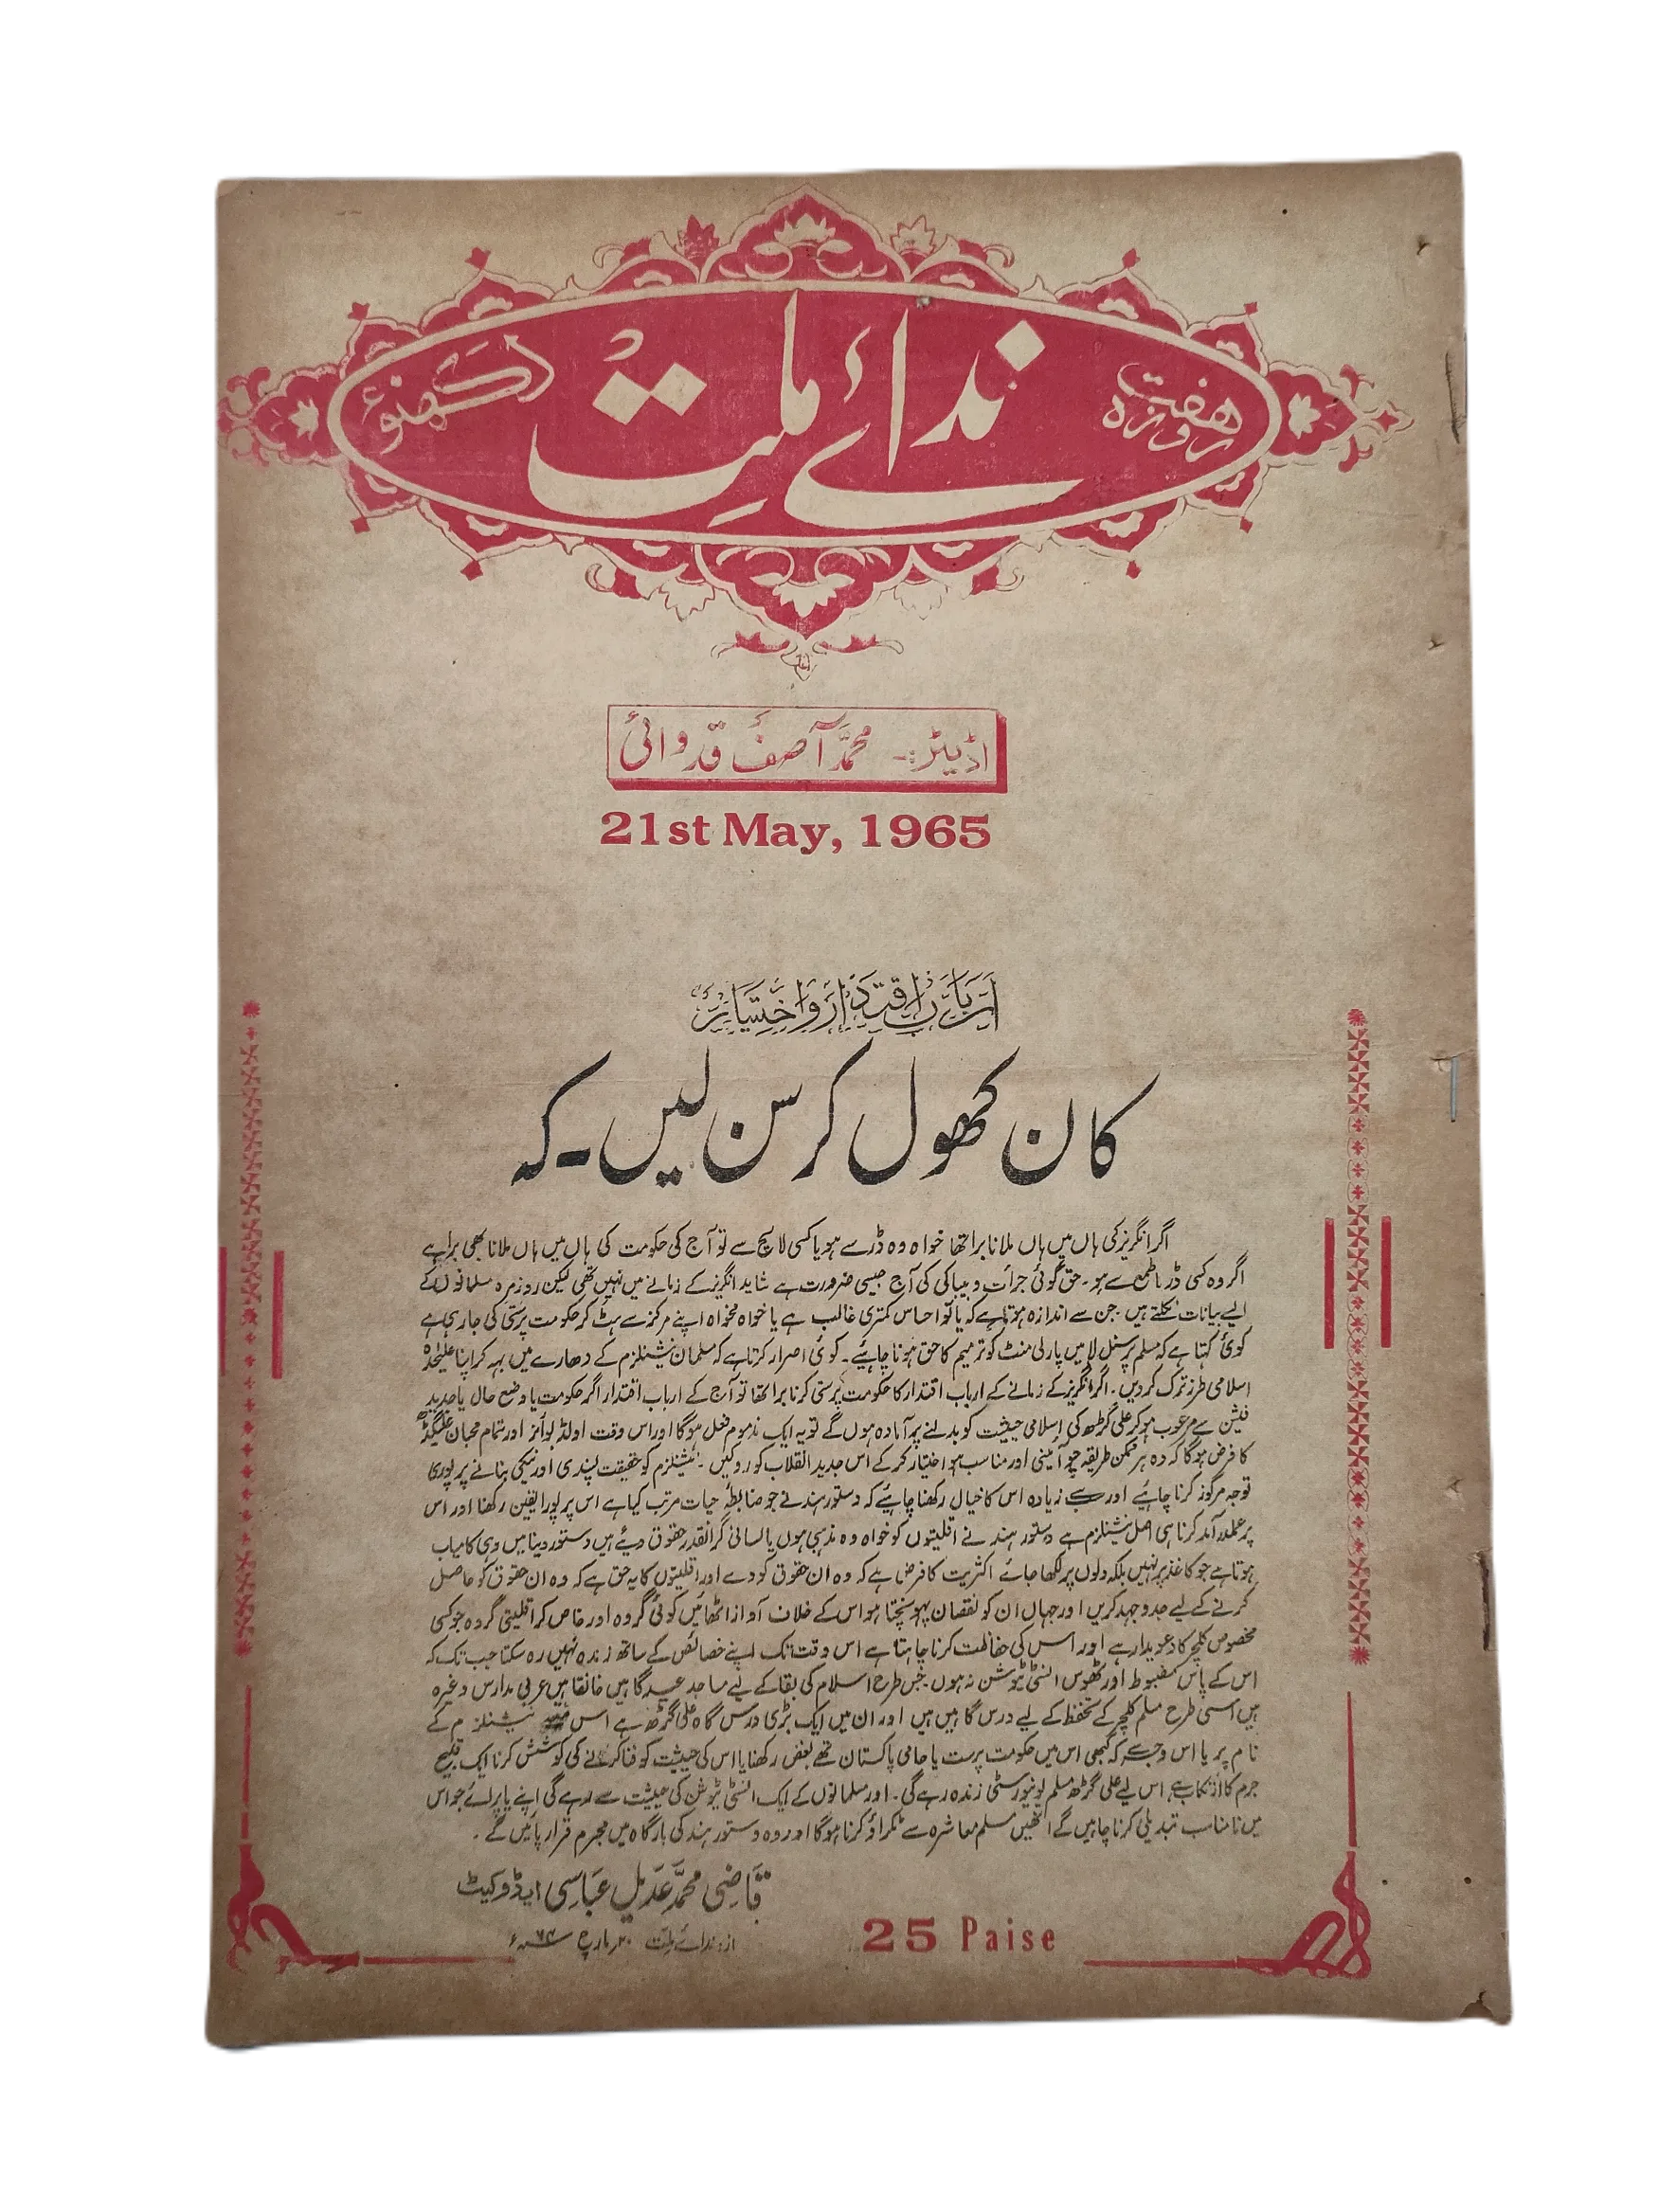 ہفت روزہ
ندائے ملت
لکھنؤ
اڈیٹر:۔ محمد آصف قدوائی
21st May, 1965
ارباب اقتدار و اختیار
کان کھول کر سن لیں ۔ کہ
اگر انگریز کی ہاں میں ہاں ملانا برا تھا خواہ وہ ڈر سے ہو یا کسی لالچ سے تو آج کی حکومت کی ہاں میں ہاں ملانا بھی برا ہے
اگر وہ کسی ڈر یا طمع سے ہو۔ حق گوئی جرأت و بیباکی کی آج جیسی ضرورت ہے شاید انگریز کے زمانے میں نہیں تھی لیکن روزمرہ مسلمانوں کے
ایسے بیانات نکلتے ہیں۔ جن سے اندازہ ہوتا ہے کہ یا تو احساس کمتری غالب ہے یا خواہ مخواہ اپنے مرکز سے ہٹ کر حکومت پرستی کی جا رہی ہے
کوئی کہتا ہے کہ مسلم پرسنل لا میں پارلی منٹ کو ترمیم کا حق ہونا چاہیئے۔ کوئی اصرار کرتا ہے کہ مسلمان نیشنلزم کے دھارے میں بہہ کر اپنا علیٰحدہ
اسلامی طرز ترک کر دیں۔ اگر انگریز کے زمانے کے ارباب اقتدار کا حکومت پرستی کرنا برا تھا تو آج کے ارباب اقتدار اگر حکومت یا وضع حال یا جدید
فیشن سے مرعوب ہو کر علی گڑھ کی اسلامی حیثیت کو بدلنے پر آمادہ ہوں گے تو یہ ایک مذموم فعل ہوگا اور اس وقت اولڈ بوائز اور تمام محبان علیگڈھ
کا فرض ہوگا کہ وہ ہر ممکن طریقہ جو آئینی اور مناسب ہو اختیار کر کے اس جدید انقلاب کو روکیں۔ نیشنلزم کو حقیقت پسندی اور نیکی بنانے پر پوری
توجہ مرکوز کرنا چاہیئے اور سب سے زیادہ اس کا خیال رکھنا چاہیئے کہ دستور ہند نے جو ضابطۂ حیات مرتب کیا ہے اس پر پورا یقین رکھنا اور اس
پر عملدرآمد کرنا ہی اصل نیشنلزم ہے دستور ہند نے اقلیتوں کو خواہ وہ مذہبی ہوں یا لسانی گرانقدر حقوق دیئے ہیں دستور دنیا میں وہی کامیاب
ہوتا ہے جو کاغذ پر نہیں بلکہ دلوں پر لکھا جائے اکثریت کا فرض ہے کہ وہ ان حقوق کو دے اور اقلیتوں کا یہ حق ہے کہ وہ ان حقوق کو حاصل
کرنے کے لیے جدوجہد کریں اور جہاں ان کو نقصان پہونچتا ہو اس کے خلاف آواز اٹھائیں کوئی گروہ اور خاص کر اقلیتی گروہ جو کسی
مخصوص کلچر کا دعویدار ہے اور اس کی حفاظت کرنا چاہتا ہے اس وقت تک اپنے خصائص کے ساتھ زندہ نہیں رہ سکتا جب تک کہ
اس کے پاس مضبوط اور ٹھوس انسٹی ٹیوشن نہ ہوں۔ جس طرح اسلام کی بقا کے لیے مساجد عیدگاہیں خانقاہیں عربی مدارس وغیرہ
ہیں اسی طرح مسلم کلچر کے تحفظ کے لیے درس گاہیں ہیں اور ان میں ایک بڑی درس گاہ علی گڑھ ہے اس نیشنلزم کے
نام پر یا اس وجہ سے کہ کبھی اس میں حکومت پرست یا حامی پاکستان تھے بغض رکھنا یا اس کی حیثیت کو فنا کرنے کی کوشش کرنا ایک قبیح
جرم کا ارتکاب ہے، اس لیے علی گڑھ مسلم یونیورسٹی زندہ رہے گی۔ اور مسلمانوں کے ایک انسٹی ٹیوشن کی حیثیت سے رہے گی اپنے یا پرائے جو اس
میں نامناسب تبدیلی کرنا چاہیں گے انھیں مسلم معاشرہ سے ٹکراؤ کرنا ہوگا اور وہ دستور ہند کی بارگاہ میں مجرم قرار پائیں گے۔
قاضی محمد عدیل عباسی ایڈوکیٹ
از: ندائے ملت ۲۰ مارچ
25 Paise